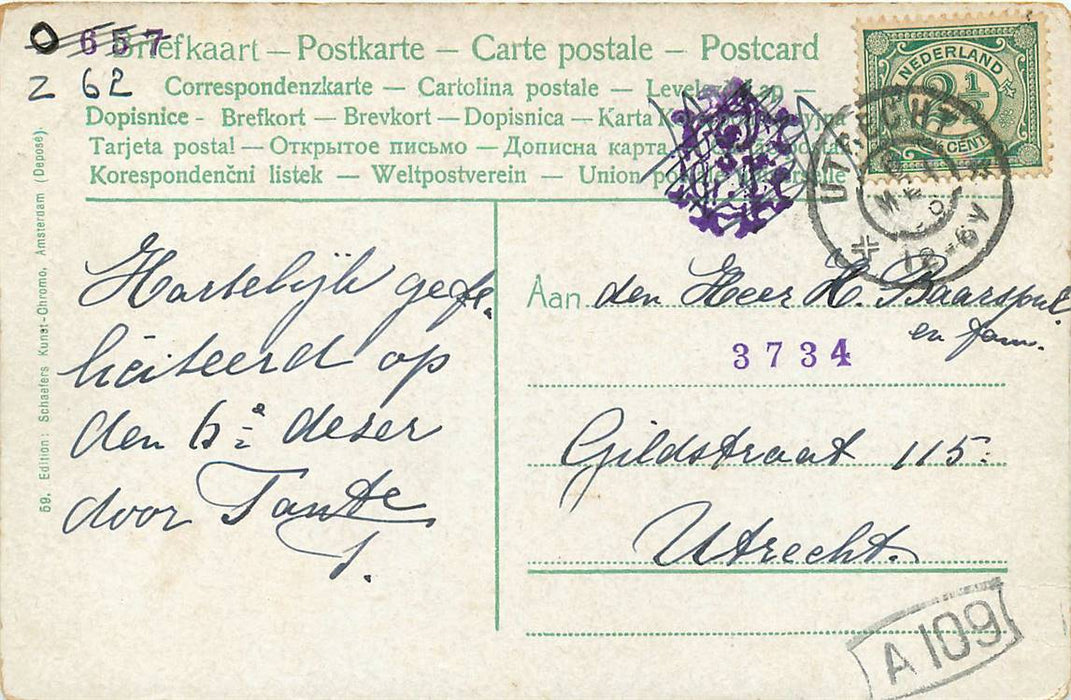 0 657
Z 62
Briefkaart — Postkarte — Carte postale — Postcard
Correspondenzkarte — Cartolina postale —
Dopisnice - Brefkort — Brevkort — Dopisnica — Karta
Tarjeta postal — Открытое письмо — Дописна карта
Korespondenční listek — Weltpostverein — Union postale universelle
NEDERLAND
2½
CENT
UTRECHT
12-6V
59. Edition: Schaefers Kunst-Chromo, Amsterdam (Deposé)
Hartelijk gefe,
liciteerd op
den 6e deser
door Tante
J.
Aan den Heer H. Baarspul
en fam.
3734
Gildstraat 115.
Utrecht.
A 109